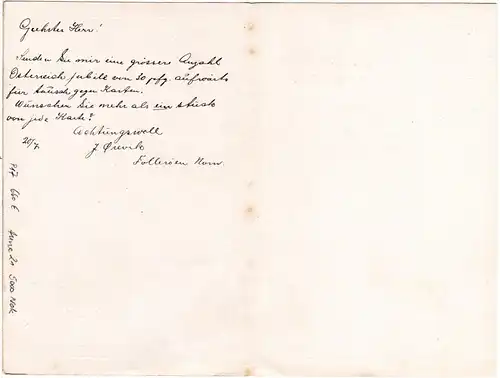 Geehrter Herr!
Senden Sie mir eine grössere Anzahl
Österreich Jubile von 30 pfg. aufwärts
für tausch gegen Karten.
Wünschen Sie mehr als ein stück
von jede Karte?
Achtungsvoll
20/7.
Folleröen Norw.
5000 Nok